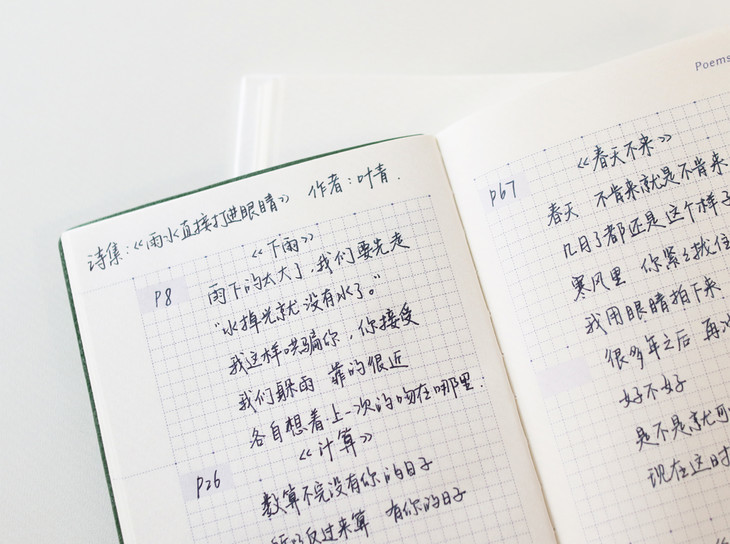 诗集:《雨水直接打进眼睛》 作者:叶青.
《下雨》
P8
雨下的太大了,我们要先走
"水掉光就没有水了。"
我这样哄骗你,你接受
我们躲雨 靠的很近
各自想着上一次的吻在哪里.
《计算》
P26
数算不完没有你的日子
反过来算 有你的日子
Poems
《春天不来》
P67
春天 不肯来就是不肯来
几月了都还是这个样子
寒风里 你紧紧拢住
我用眼睛拍下来
很多年之后 再
好不好
是不是就可
现在这时